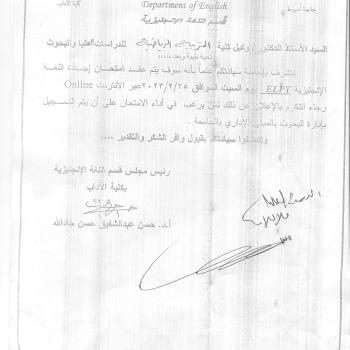 جامعة أسيوط
كلية الآداب
Department of English
قسم اللغة الإنجليزية
السيد الأستاذ الدكتور / وكيل كلية التربية الرياضية للدراسات العليا والبحوث
تحية طيبة وبعد ....
نتشرف بإحاطة سيادتكم علماً بأنه سوف يتم عقد امتحان إجادة اللغة
الإنجليزية ELPT يوم السبت الموافق ٢٠٢٣/٢/٢٥ عبر الانترنت Online
رجاء التكرم بالإعلان عن ذلك لمن يرغب في أداء الامتحان علي أن يتم التسجيل
بإدارة البحوث بالمبنى الإداري بالجامعة .
وتفضلوا سيادتكم بقبول وافر الشكر والتقدير ....
رئيس مجلس قسم اللغة الإنجليزية
بكلية الآداب
أ.د. حسن عبدالشفيق حسن جادالله